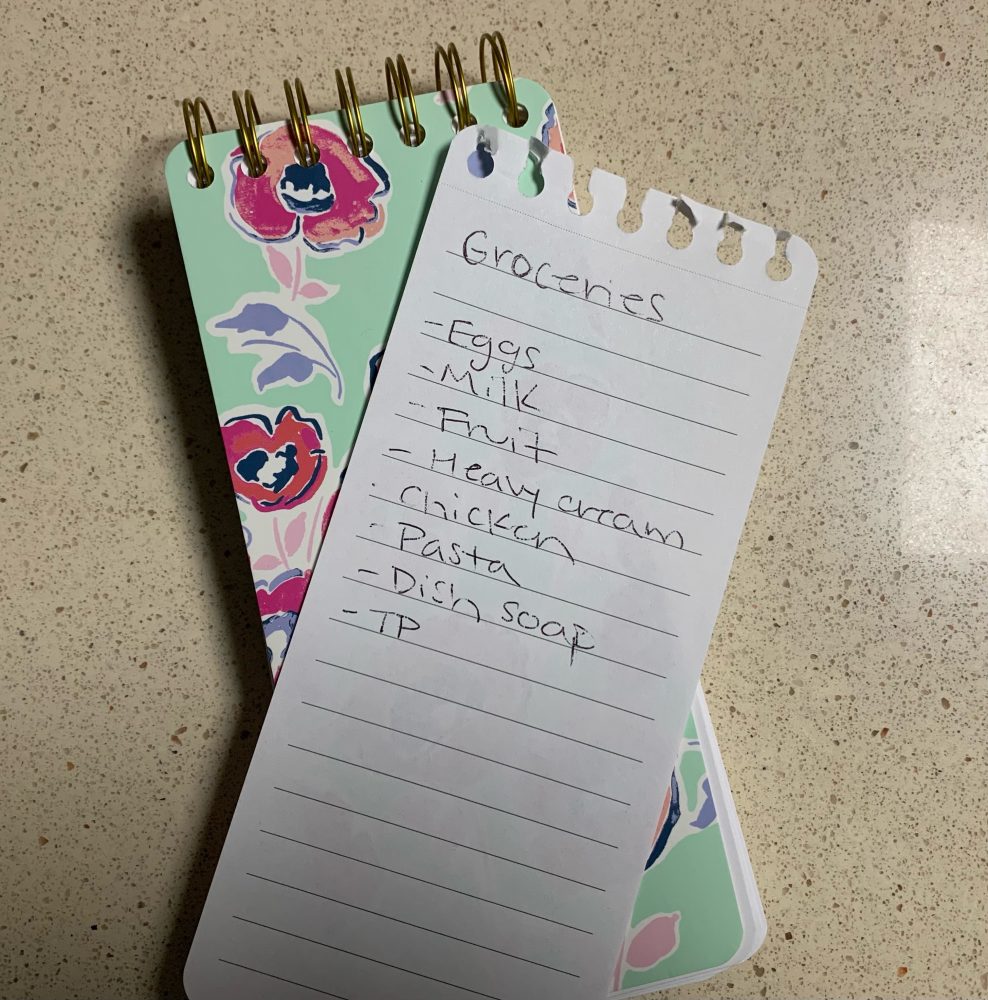 Groceries
- Eggs
- Milk
- Fruit
- Heavy cream
- Chicken
- Pasta
- Dish soap
- TP